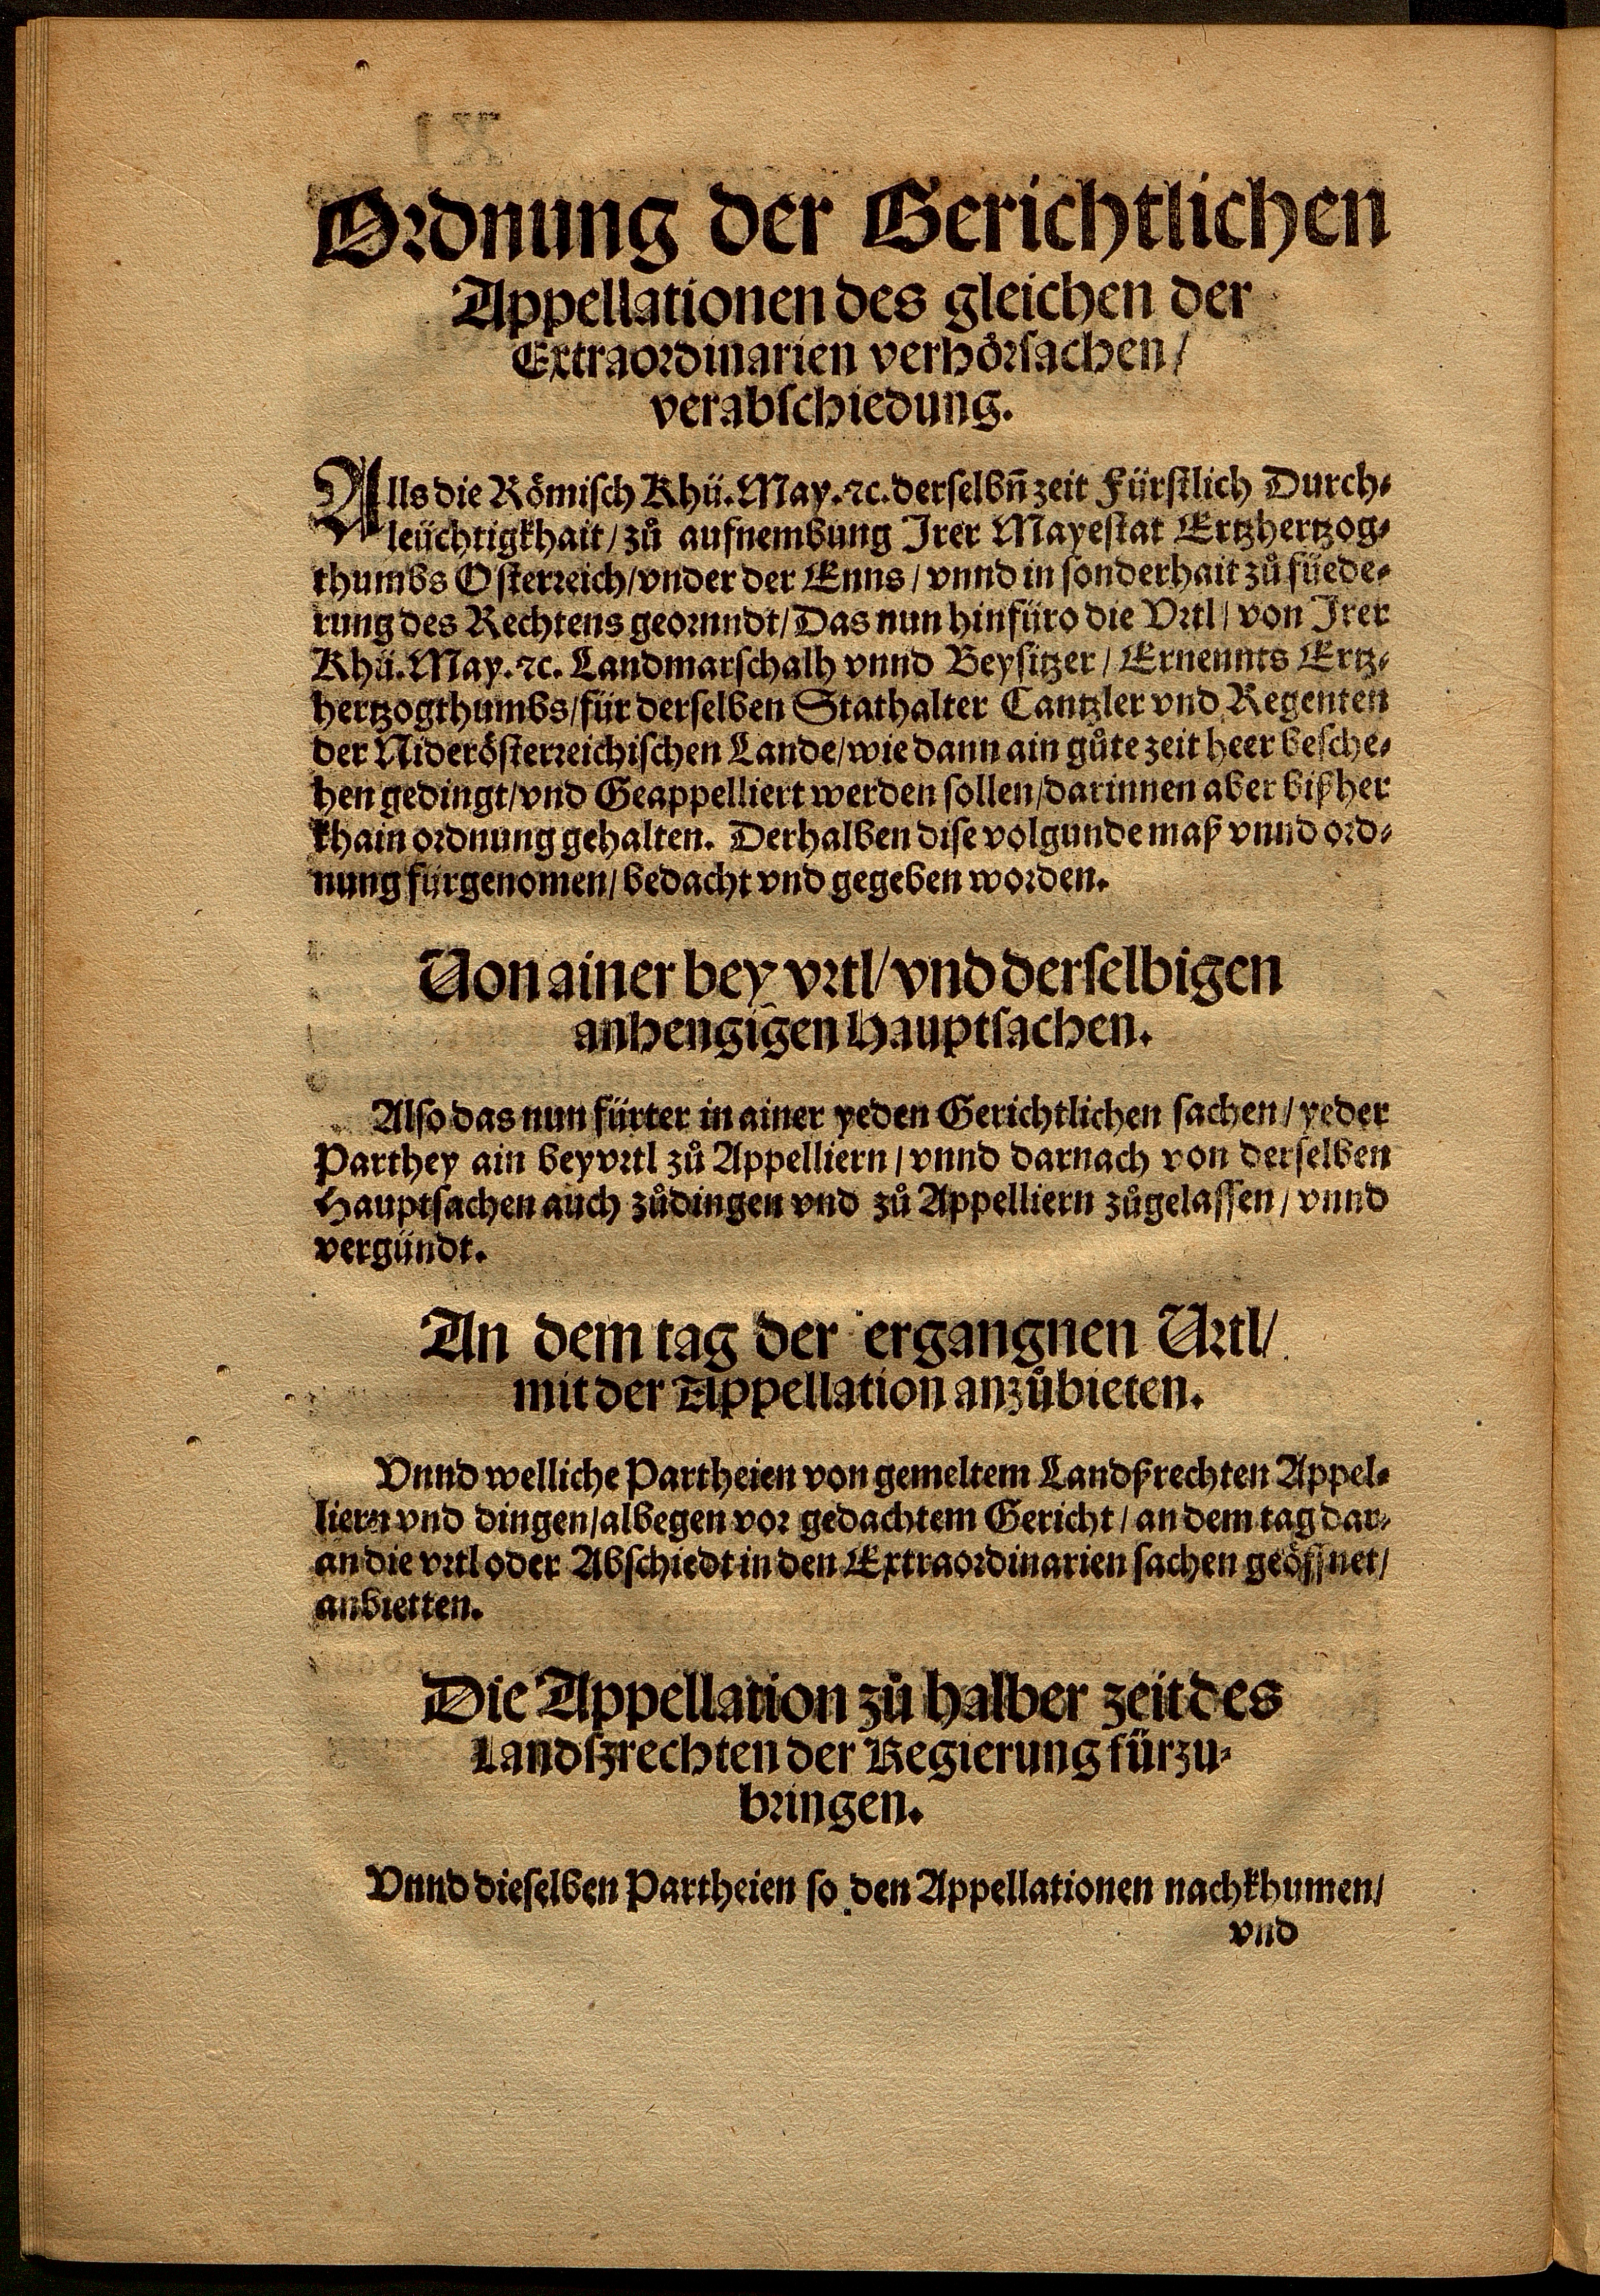 Ordnung der Gerichtlichen
Appellationen des gleichen der
Extraordinarien verhörsachen/
verabschiedung.
Alls die Römisch Khü. May. ꝛc. derselbn̄ zeit Fürstlich Durch-
leüchtigkhait/ zů aufnembung Irer Mayestat Ertzhertzog-
thumbs Osterreich/ vnder der Enns/ vnnd in sonderhait zů füede-
rung des Rechtens geornndt/ Das nun hinfüro die Vrtl/ von Irer
Khü. May. ꝛc. Landmarschalh vnnd Beysitzer/ Ernennts Ertz-
hertzogthumbs/ für derselben Stathalter Cantzler vnd Regenten
der Niderösterreichischen Lande/ wie dann ain gůte zeit heer besche-
hen gedingt/ vnd Geappelliert werden sollen/ darinnen aber bißher
khain ordnung gehalten. Derhalben dise volgunde maß vnnd ord-
nung fürgenomen/ bedacht vnd gegeben worden.
Von ainer bey vrtl/ vnd derselbigen
anhengigen Hauptsachen.
Also das nun fürter in ainer yeden Gerichtlichen sachen/ yeder
Parthey ain beyvrtl zů Appelliern/ vnnd darnach von derselben
Hauptsachen auch zůdingen vnd zů Appelliern zůgelassen/ vnnd
vergündt.
An dem tag der ergangnen Vrtl/
mit der Appellation anzůbieten.
Vnnd welliche Partheien von gemeltem Landßrechten Appel-
liern vnd dingen/ albegen vor gedachtem Gericht/ an dem tag dar-
an die vrtl oder Abschiedt in den Extraordinarien sachen geöffnet/
anbietten.
Die Appellation zů halber zeit des
Landßrechten der Regierung fürzu-
bringen.
Vnnd dieselben Partheien so den Appellationen nachkhumen/
vnd